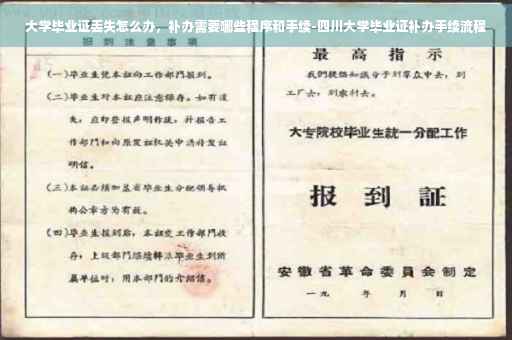 大学毕业证丢失怎么办，补办需要哪些程序和手续-四川大学毕业证补办手续流程
报到注意事项
(一)毕业生凭本证向工作部门报到。
(二)毕业生对本证应注意保存。如有遗
失，应即登报声明作废，并报告工
作部门和向原发证机关申请补发证
明信。
(三)本证必须加盖省毕业生分配领导机
构公章方为有效。
(四)毕业生报到后，本证交工作部门收
存；上级部门
单位时，用本部门的介绍信。
最高指示
我们提倡知识分子到群众中去，到
工厂去，到农村去。
大专院校毕业生統一分配工作
报到証
安徽省革命委員会制定
一九 年 月 日